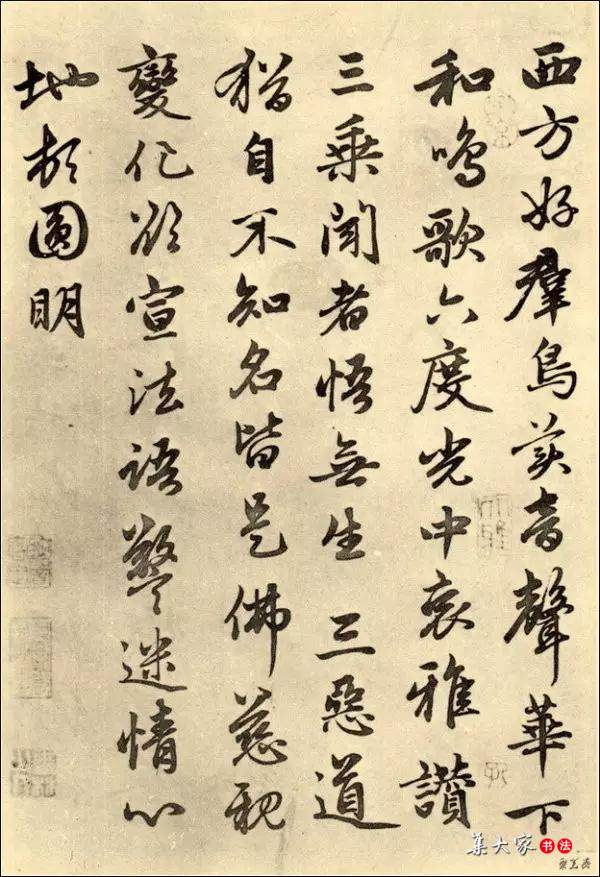 西方好羣鳥美音聲華下
和鳴歌六度光中哀雅讚
三乘聞者悟無生 三惡道
猶自不知名皆是佛慈親
變化欲宣法語警迷情心
地頓圓明
集大家书法